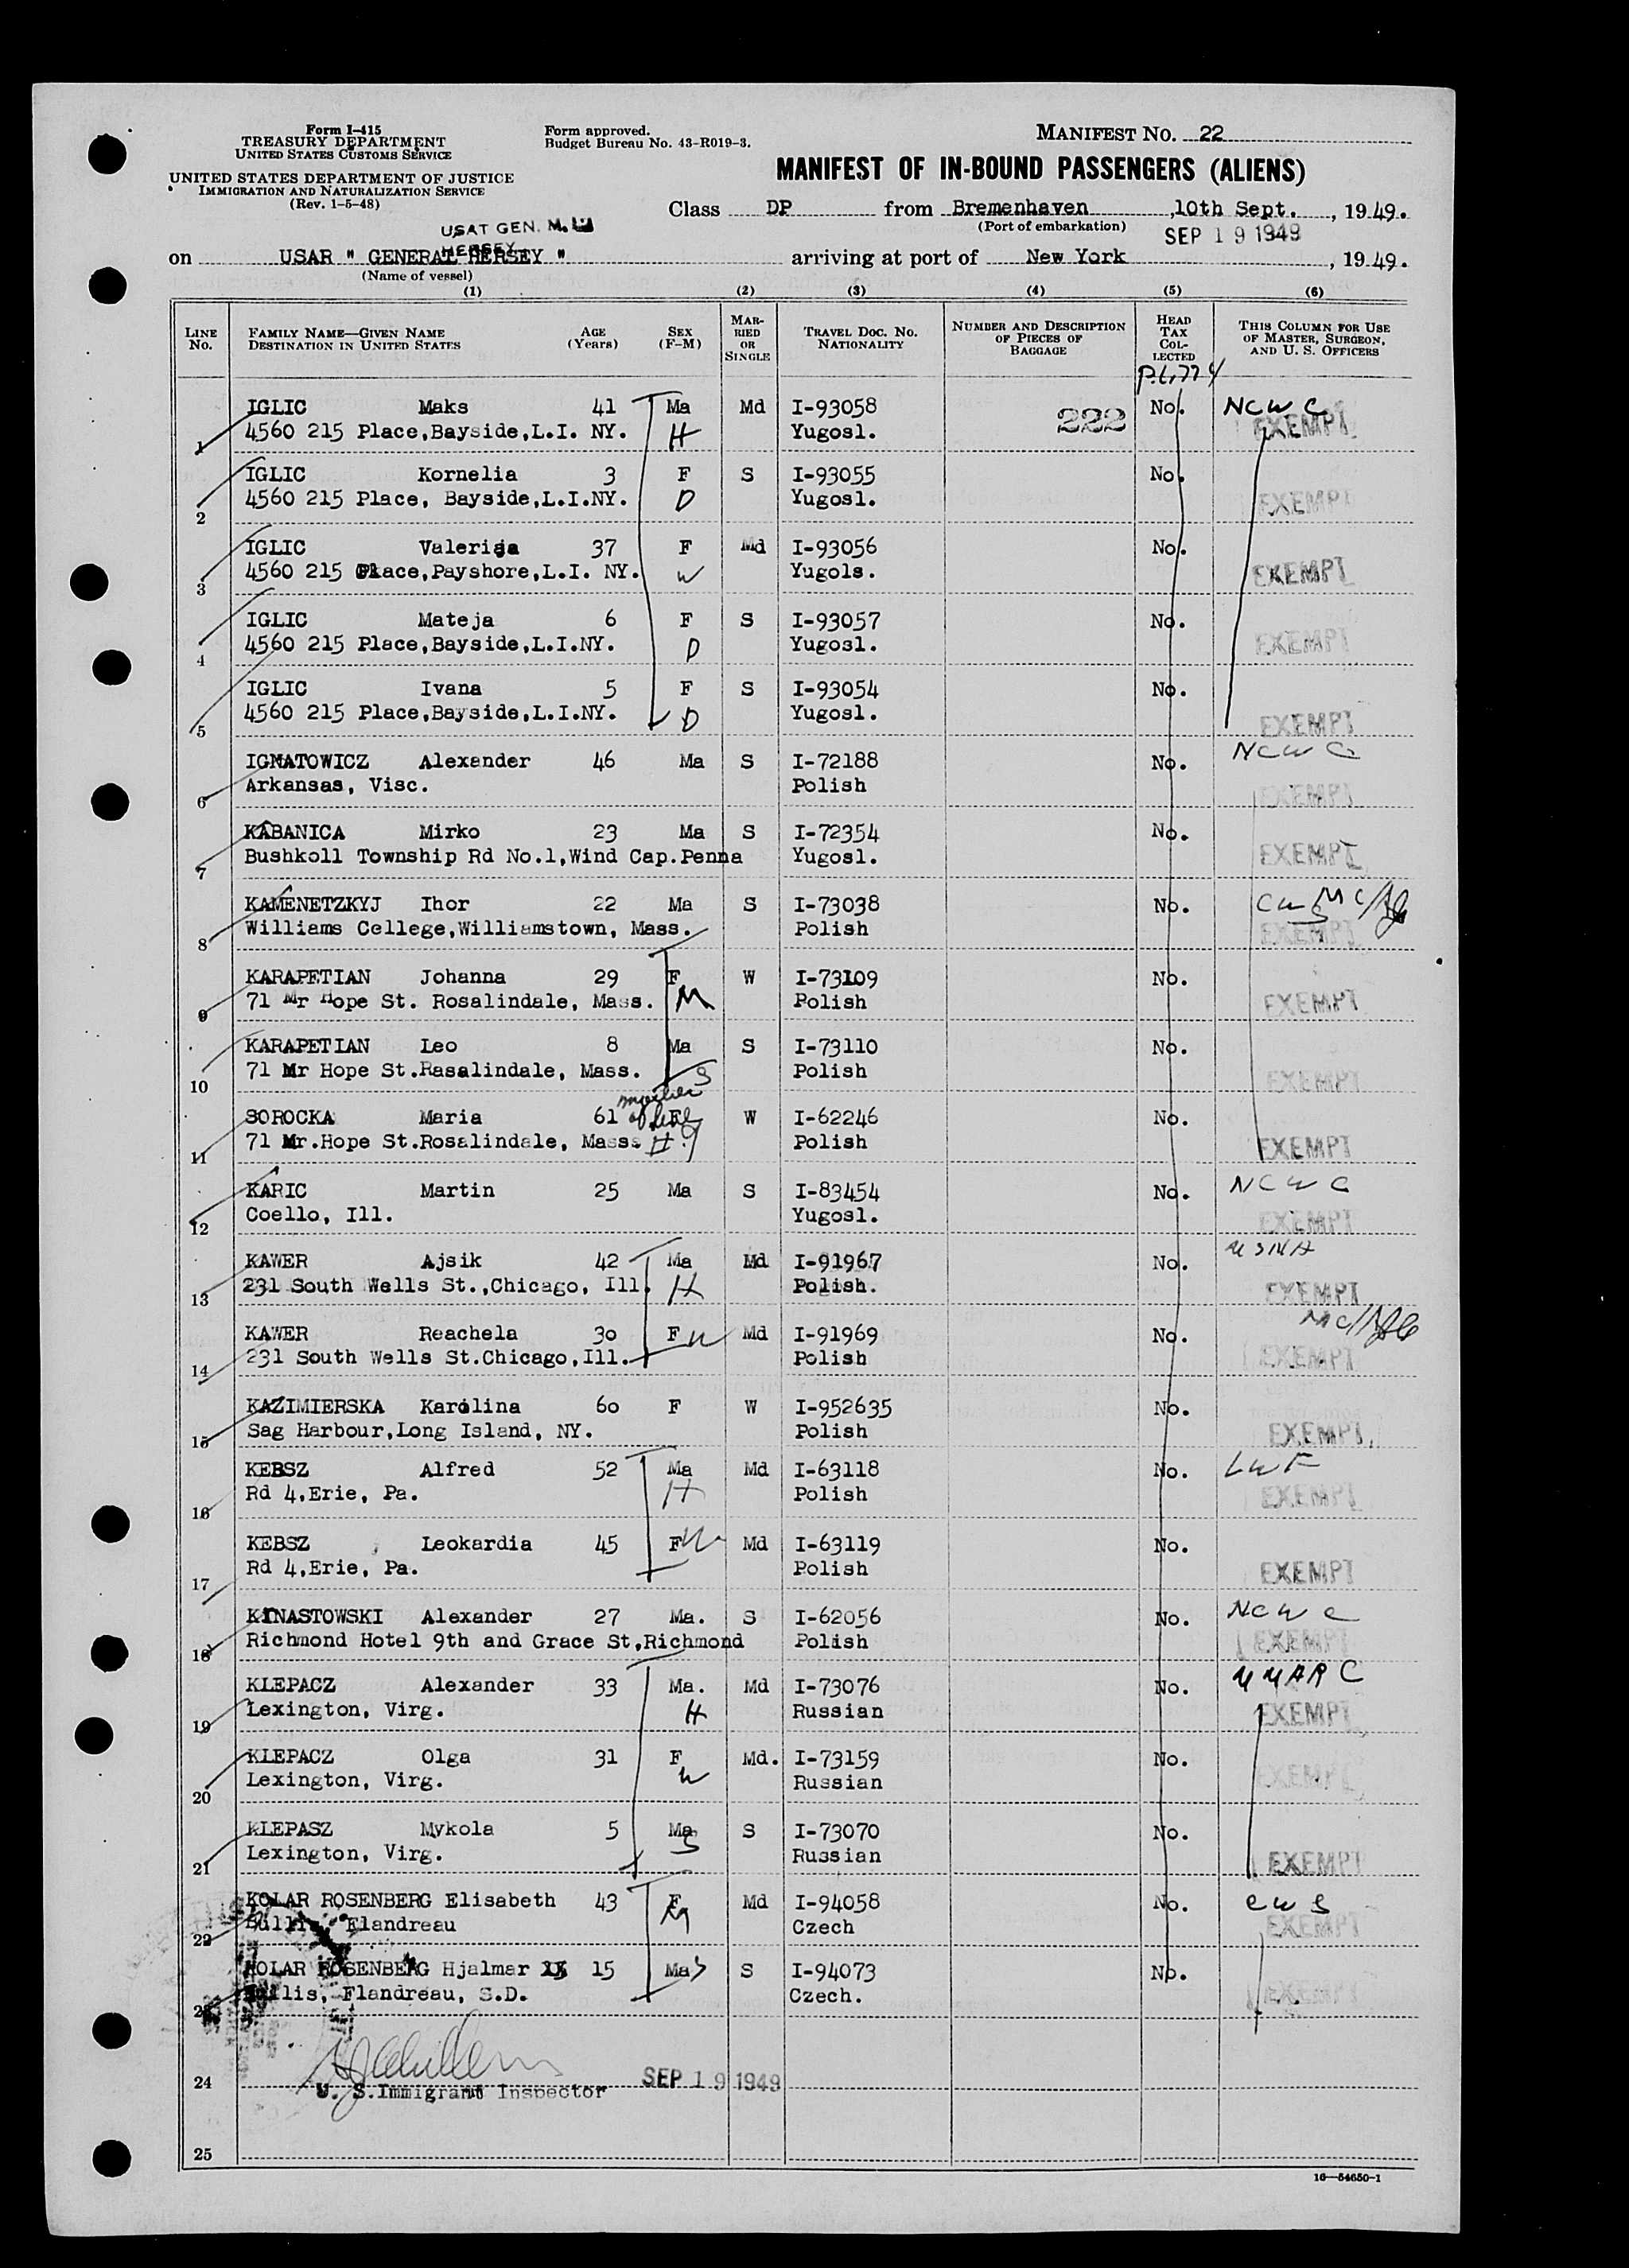 Form I-415
TREASURY DEPARTMENT
UNITED STATES CUSTOMS SERVICE
UNITED STATES DEPARTMENT OF JUSTICE
IMMIGRATION AND NATURALIZATION SERVICE
(Rev. 1-5-48)
Form approved.
Budget Bureau No. 43-R019-3.
MANIFEST NO. 22
MANIFEST OF IN-BOUND PASSENGERS (ALIENS)
Class DP from Bremenhaven ,10th Sept. , 1949.
(Port of embarkation)
USAT GEN. M.
HERSEY
SEP 19 1949
on USAR " GENERAL HERSEY " arriving at port of New York , 1949.
(Name of vessel)
(1) (2) (3) (4) (5) (6)
LINE No. FAMILY NAME—GIVEN NAME DESTINATION IN UNITED STATES AGE (Years) SEX (F-M) MARRIED OR SINGLE TRAVEL DOC. NO. NATIONALITY NUMBER AND DESCRIPTION OF PIECES OF BAGGAGE HEAD TAX COLLECTED THIS COLUMN FOR USE OF MASTER, SURGEON, AND U. S. OFFICERS
IGLIC Maks 41 Ma Md I-93058 222 No. NCWC
1 4560 215 Place,Bayside,L.I. NY. H Yugosl. EXEMPT
IGLIC Kornelia 3 F S I-93055 No.
2 4560 215 Place, Bayside,L.I.NY. D Yugosl. EXEMPT
IGLIC Valerija 37 F Md I-93056 No.
3 4560 215 Place,Payshore,L.I. NY. W Yugols. EXEMPT
IGLIC Mateja 6 F S I-93057 No.
4 4560 215 Place,Bayside,L.I.NY. D Yugosl. EXEMPT
IGLIC Ivana 5 F S I-93054 No.
5 4560 215 Place,Bayside,L.I.NY. D Yugosl. EXEMPT
IGNATOWICZ Alexander 46 Ma S I-72188 No. NCWC
6 Arkansas, Visc. Polish EXEMPT
KABANICA Mirko 23 Ma S I-72354 No.
7 Bushkoll Township Rd No.1,Wind Cap.Penna Yugosl. EXEMPT
KAMENETZKYJ Ihor 22 Ma S I-73038 No.
8 Williams Cellege,Williamstown, Mass. Polish EXEMPT
KARAPETIAN Johanna 29 F W I-73109 No.
9 71 Mr Hope St. Rosalindale, Mass. M Polish EXEMPT
KARAPETIAN Leo 8 Ma S I-73110 No.
10 71 Mr Hope St.Rasalindale, Mass. S Polish EXEMPT
SOROCKA Maria 61 mother of F W I-62246 No.
11 71 Mr.Hope St.Rosalindale, Masss Polish EXEMPT
KARIC Martin 25 Ma S I-83454 No. NCWC
12 Coello, Ill. Yugosl. EXEMPT
KAWER Ajsik 42 Ma Md I-91967 No. USNA
13 231 South Wells St.,Chicago, Ill. H Polish. EXEMPT
KAWER Reachela 30 F W Md I-91969 No.
14 231 South Wells St.Chicago,Ill. Polish EXEMPT
KAZIMIERSKA Karolina 60 F W I-952635 No.
15 Sag Harbour,Long Island, NY. Polish EXEMPT
KEBSZ Alfred 52 Ma Md I-63118 No. LWF
16 Rd 4,Erie, Pa. H Polish EXEMPT
KEBSZ Leokardia 45 F W Md I-63119 No.
17 Rd 4,Erie, Pa. Polish EXEMPT
KINASTOWSKI Alexander 27 Ma. S I-62056 No. NCWC
18 Richmond Hotel 9th and Grace St,Richmond Polish EXEMPT
KLEPACZ Alexander 33 Ma. Md I-73076 No. UUARC
19 Lexington, Virg. H Russian EXEMPT
KLEPACZ Olga 31 F Md. I-73159 No.
20 Lexington, Virg. W Russian EXEMPT
KLEPASZ Mykola 5 Ma S I-73070 No.
21 Lexington, Virg. S Russian EXEMPT
KOLAR ROSENBERG Elisabeth 43 F Md I-94058 No. CWS
22 Flandreau M Czech EXEMPT
KOLAR ROSENBERG Hjalmar 15 Ma S S I-94073 No.
23 Flandreau, S.D. Czech. EXEMPT
24 U. S.Immigrant Inspector SEP 19 1949
25
16—54650-1